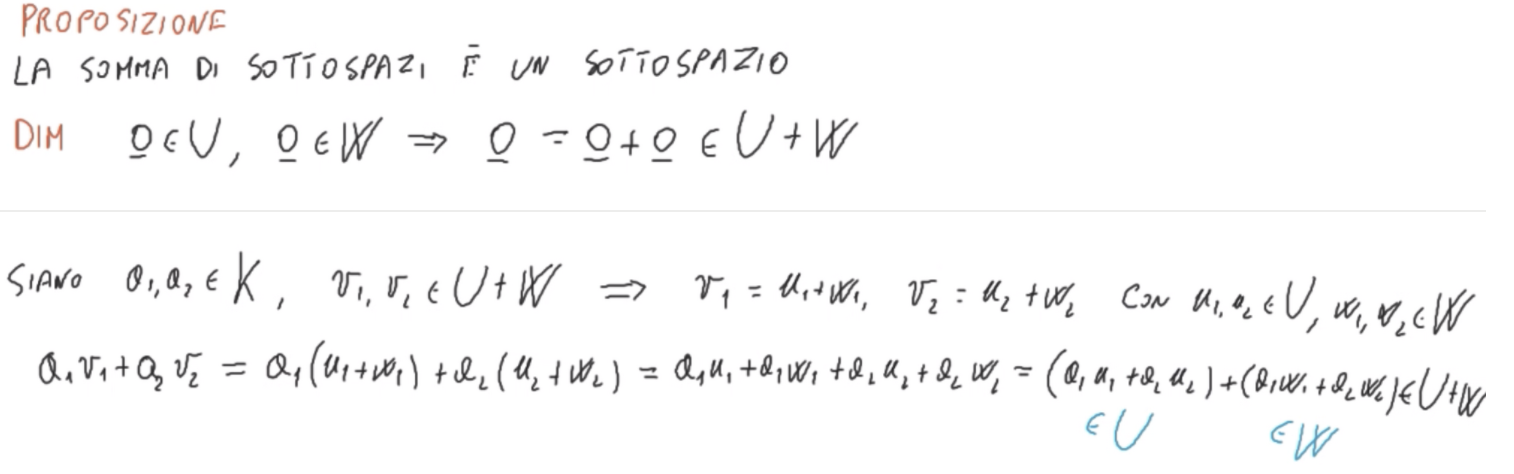 PROPOSIZIONE
LA SOMMA DI SOTTOSPAZI È UN SOTTOSPAZIO
DIM 0 ∈ U, 0 ∈ W ⇒ 0 = 0 + 0 ∈ U + W
SIANO a₁, a₂ ∈ K, v₁, v₂ ∈ U + W ⇒ v₁ = u₁ + w₁, v₂ = u₂ + w₂ CON u₁, u₂ ∈ U, w₁, w₂ ∈ W
a₁v₁ + a₂v₂ = a₁(u₁ + w₁) + a₂(u₂ + w₂) = a₁u₁ + a₁w₁ + a₂u₂ + a₂w₂ = (a₁u₁ + a₂u₂) + (a₁w₁ + a₂w₂) ∈ U + W
∈ U ∈ W